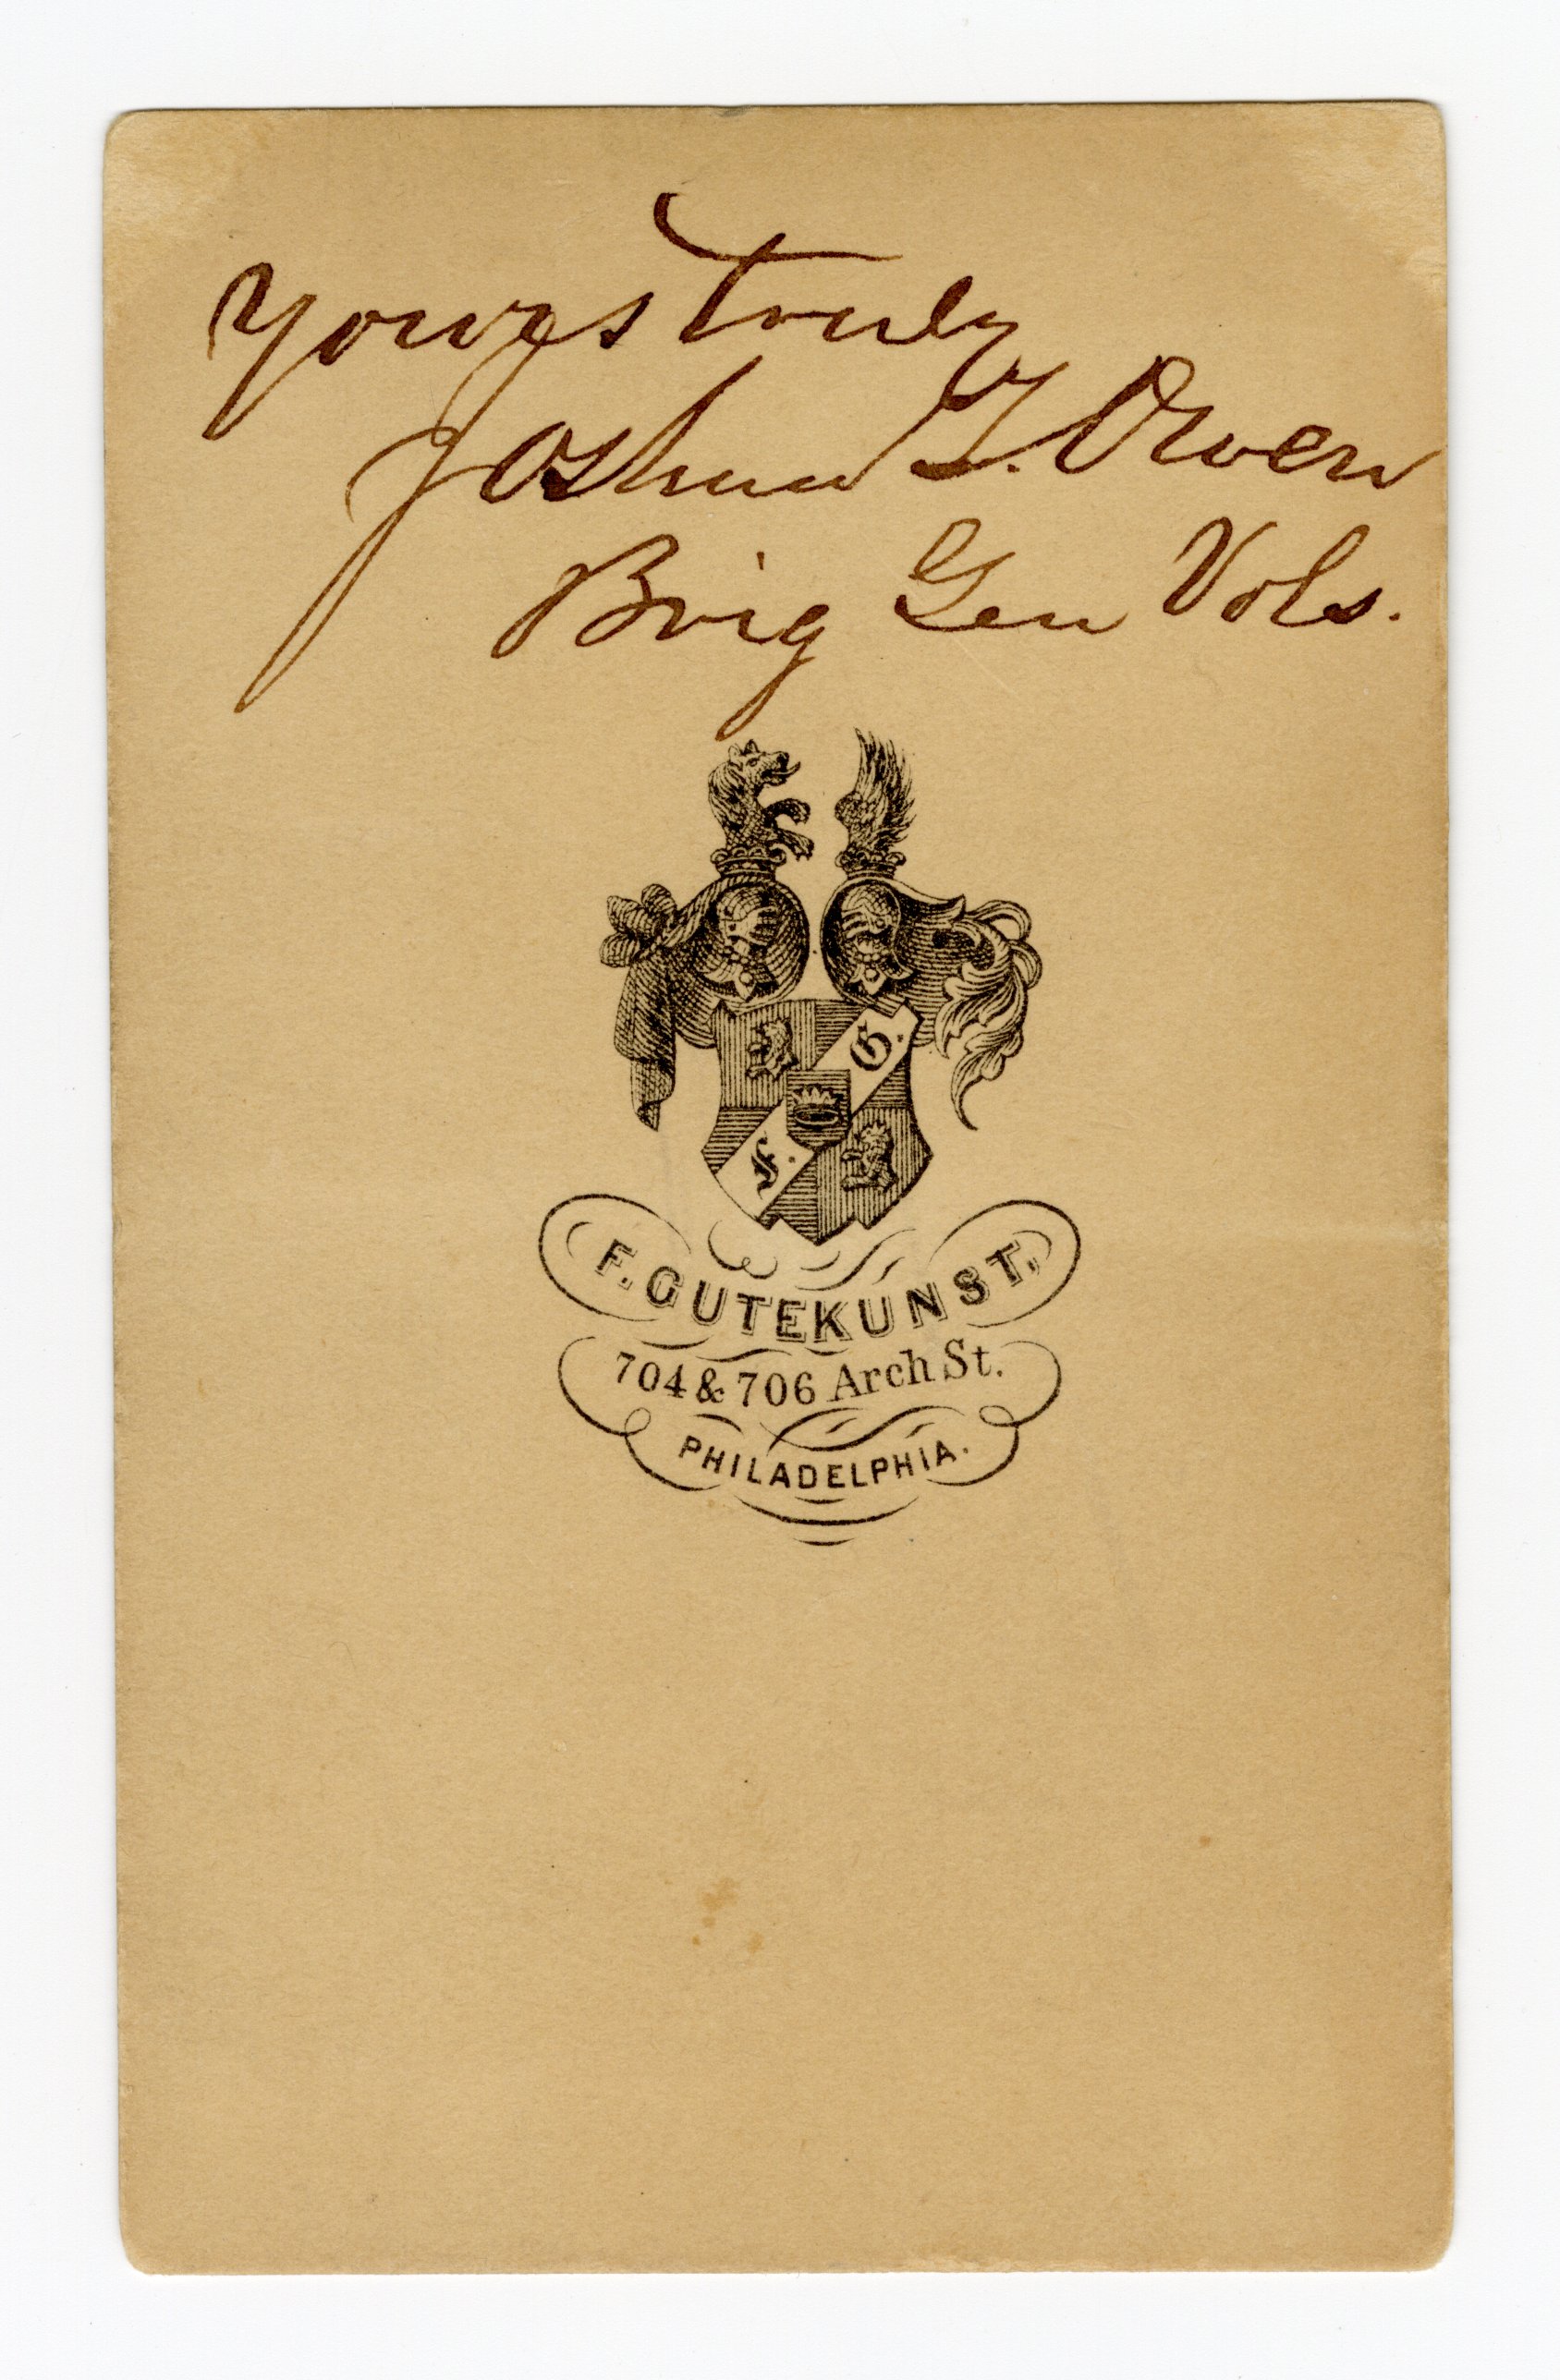 Yours truly
Joshua T. Owen
Brig Gen Vols.
G.
F.
F. GUTEKUNST,
704 & 706 Arch St.
PHILADELPHIA.